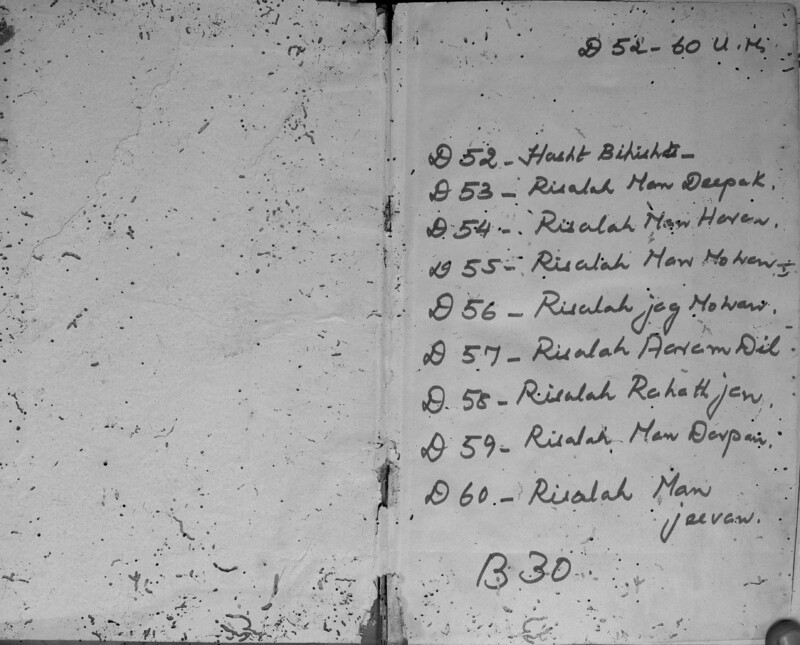 D 52-60 U.M
D 52 - Hasht Bihisht -
D 53 - Risalah Man Deepak.
D 54 - Risalah Man Haran.
D 55 - Risalah Man Mohan - I
D 56 - Risalah jag Mohan.
D 57 - Risalah Aaram Dil
D 58 - Risalah Rahath jan.
D 59 - Risalah Man Darpan.
D 60 - Risalah Man
jeevan.
B 30